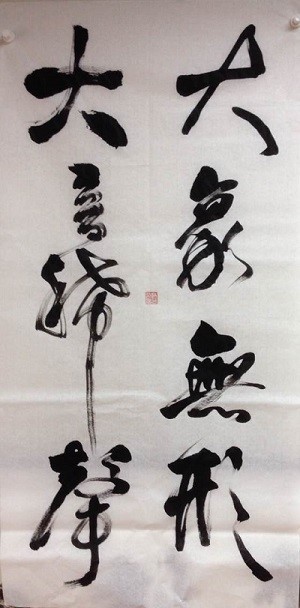 大象無形
大音希聲